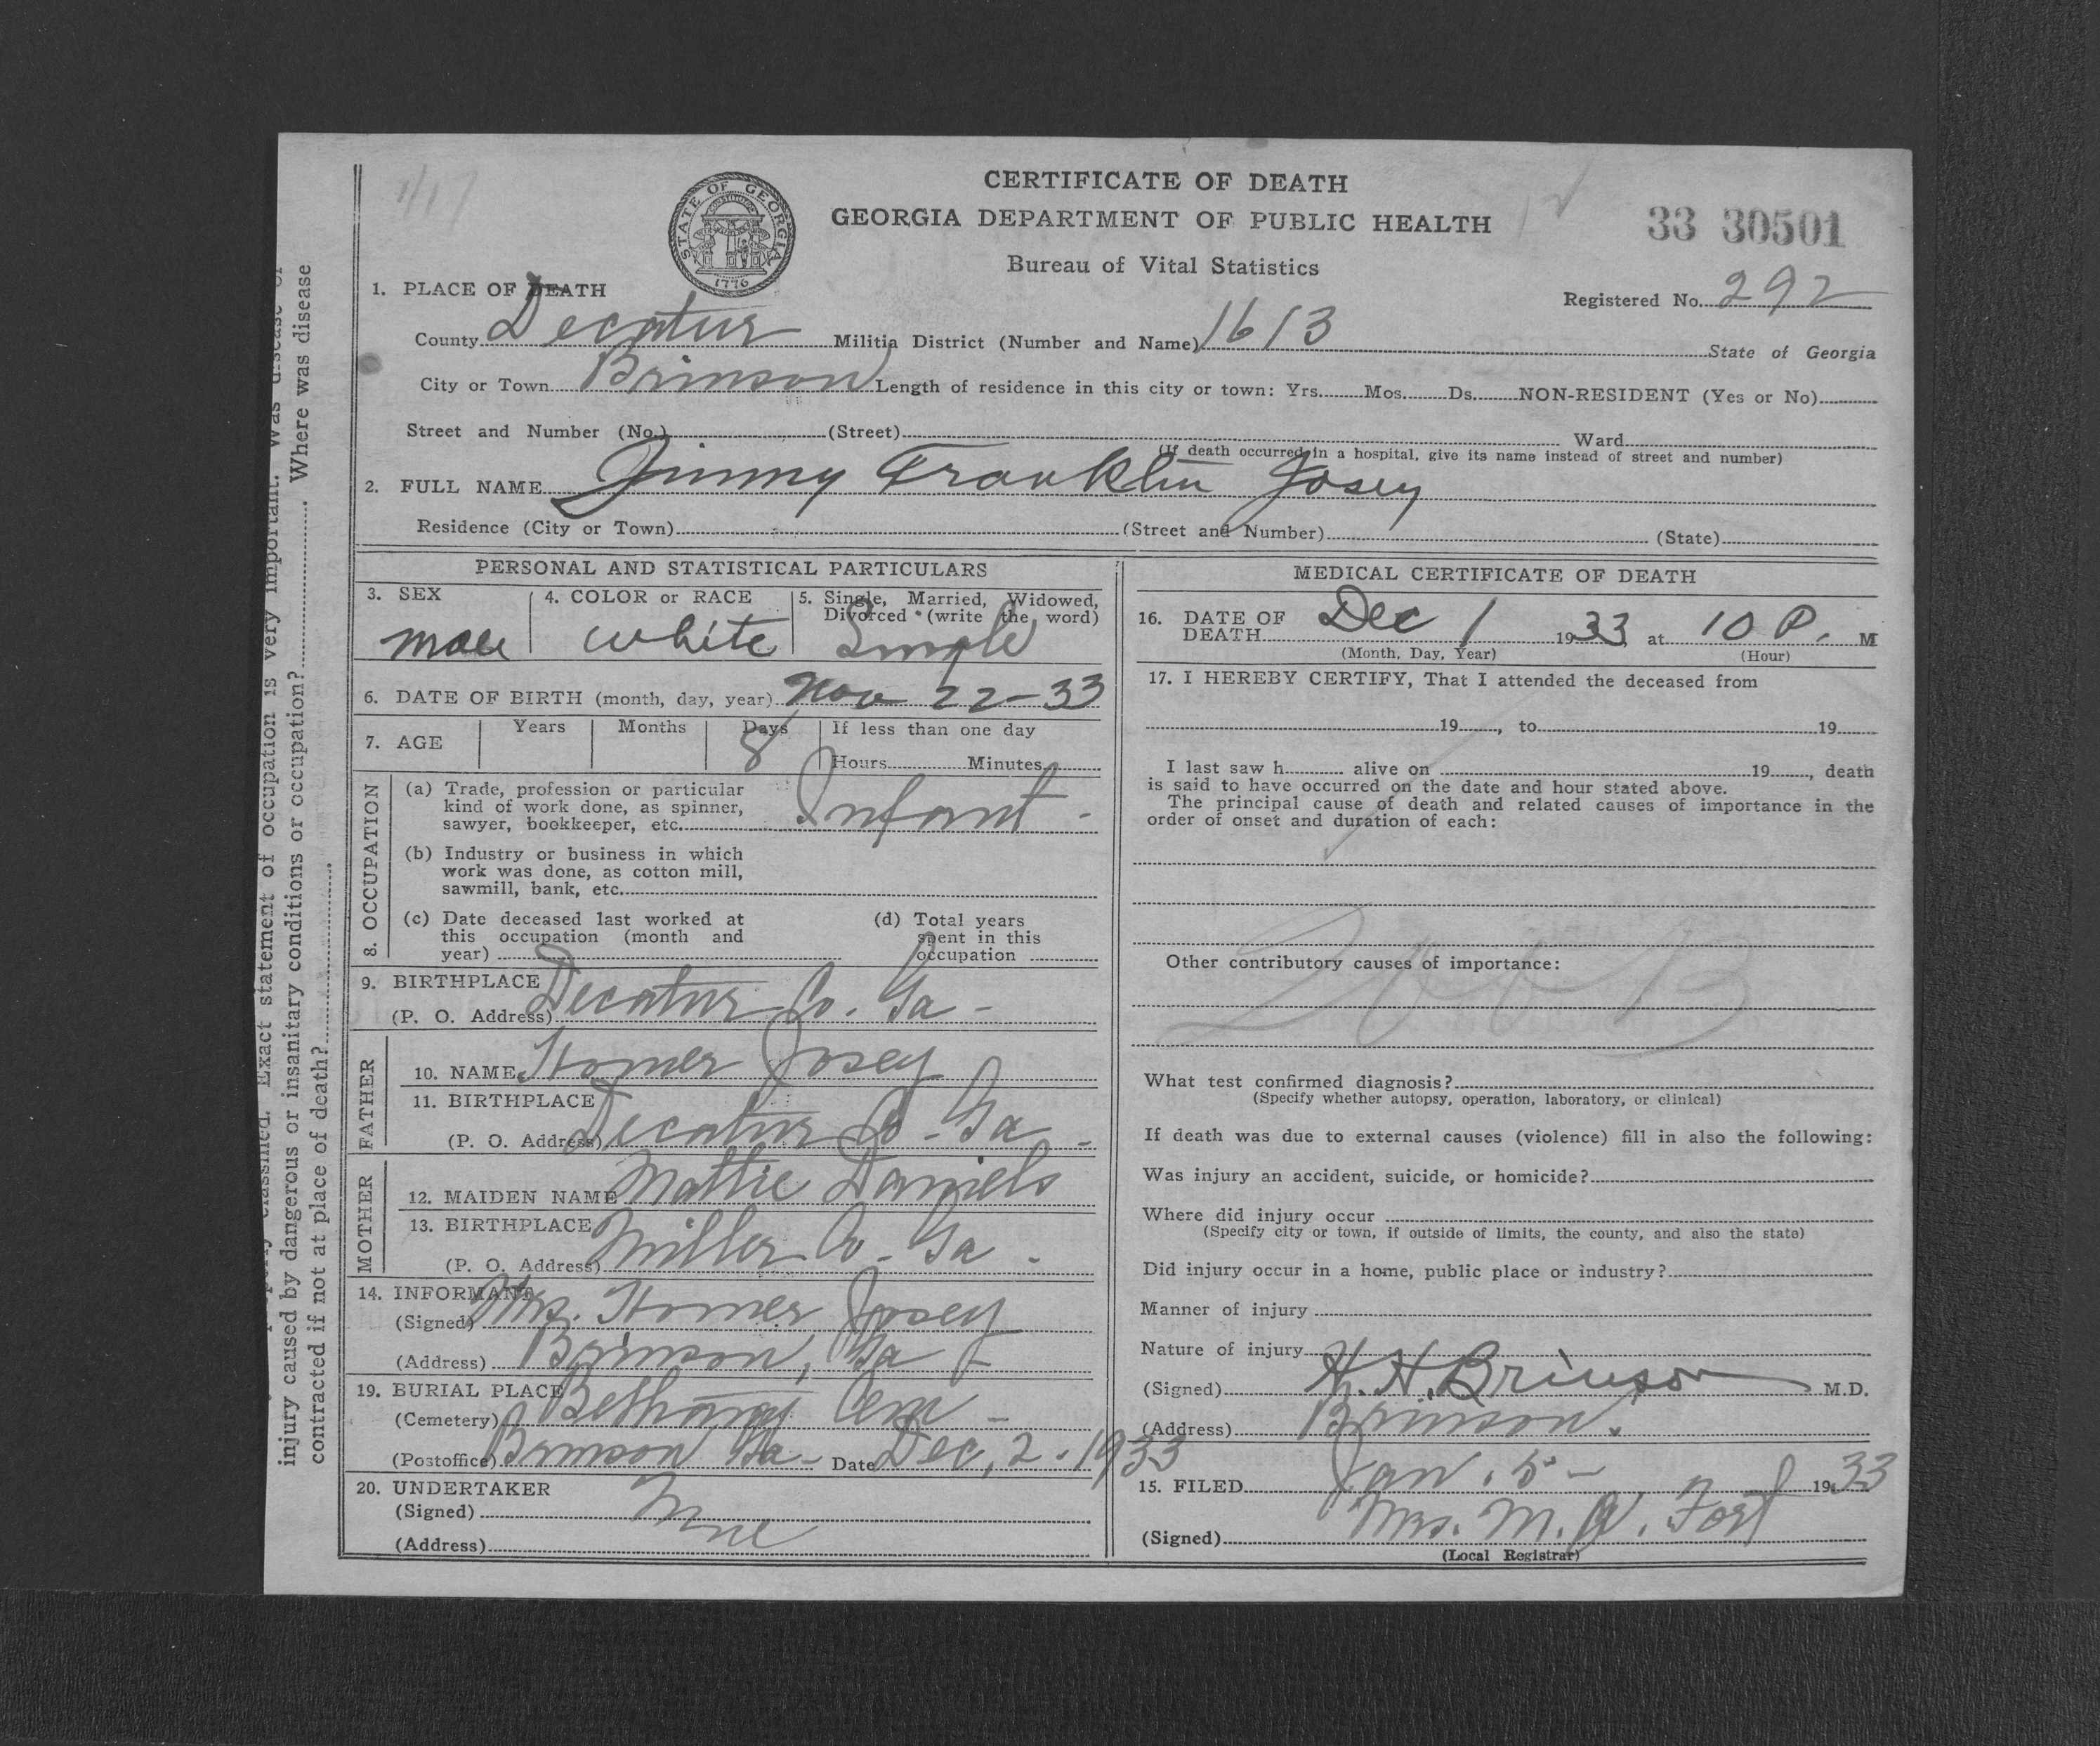 CERTIFICATE OF DEATH
GEORGIA DEPARTMENT OF PUBLIC HEALTH
Bureau of Vital Statistics
33 30501
STATE OF GEORGIA
CONSTITUTION
1776
Registered No. 292
1. PLACE OF DEATH
County Decatur Militia District (Number and Name) 1613 State of Georgia
City or Town Brinson Length of residence in this city or town: Yrs. Mos. Ds. NON-RESIDENT (Yes or No)
Street and Number (No.) (Street) Ward
(If death occurred in a hospital, give its name instead of street and number)
2. FULL NAME Jimmy Franklin Josey
Residence (City or Town) (Street and Number) (State)
PERSONAL AND STATISTICAL PARTICULARS
3. SEX male
4. COLOR or RACE white
5. Single, Married, Widowed, Divorced (write the word) Single
6. DATE OF BIRTH (month, day, year) Nov 22-33
7. AGE Years Months Days 8 If less than one day
Hours Minutes
8. OCCUPATION
(a) Trade, profession or particular
kind of work done, as spinner,
sawyer, bookkeeper, etc. Infant -
(b) Industry or business in which
work was done, as cotton mill,
sawmill, bank, etc.
(c) Date deceased last worked at
this occupation (month and
year)
(d) Total years
spent in this
occupation
9. BIRTHPLACE
(P. O. Address) Decatur Co. Ga -
FATHER
10. NAME Homer Josey
11. BIRTHPLACE
(P. O. Address) Decatur Co - Ga -
MOTHER
12. MAIDEN NAME Mattie Daniels
13. BIRTHPLACE
(P. O. Address) Miller Co - Ga -
14. INFORMANT
(Signed) Mrs. Homer Josey
(Address) Brinson, Ga -
19. BURIAL PLACE
(Cemetery) Bethany Cem -
(Postoffice) Brinson Ga - Date Dec, 2 - 1933
20. UNDERTAKER
(Signed)
(Address)
MEDICAL CERTIFICATE OF DEATH
16. DATE OF
DEATH Dec 1 1933 at 10 P. M
(Month, Day, Year) (Hour)
17. I HEREBY CERTIFY, That I attended the deceased from
19 , to 19
I last saw h alive on 19 , death
is said to have occurred on the date and hour stated above.
The principal cause of death and related causes of importance in the
order of onset and duration of each:
Other contributory causes of importance:
What test confirmed diagnosis?
(Specify whether autopsy, operation, laboratory, or clinical)
If death was due to external causes (violence) fill in also the following:
Was injury an accident, suicide, or homicide?
Where did injury occur
(Specify city or town, if outside of limits, the county, and also the state)
Did injury occur in a home, public place or industry?
Manner of injury
Nature of injury
(Signed) H. H. Brinson M.D.
(Address) Brinson.
15. FILED Jan. 5 - 1933
(Signed) Mrs. M. W. Fort
(Local Registrar)
Exact statement of occupation is very important. Was disease or
injury caused by dangerous or insanitary conditions or occupation? Where was disease
contracted if not at place of death?